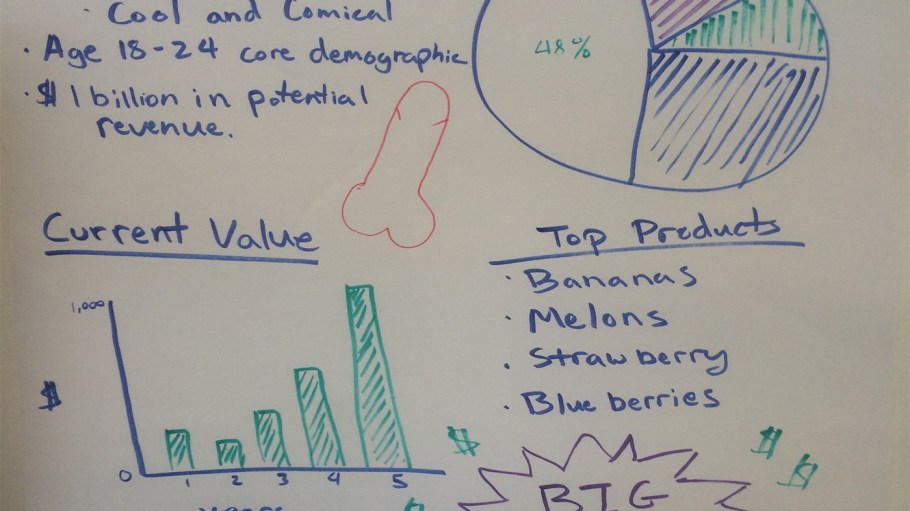 · Cool and Comical
· Age 18-24 core demographic
· $1 billion in potential
revenue.
48%
Current Value
1,000
$
0
1 2 3 4 5
years
Top Products
· Bananas
· Melons
· Strawberry
· Blueberries
$
$
$
BIG